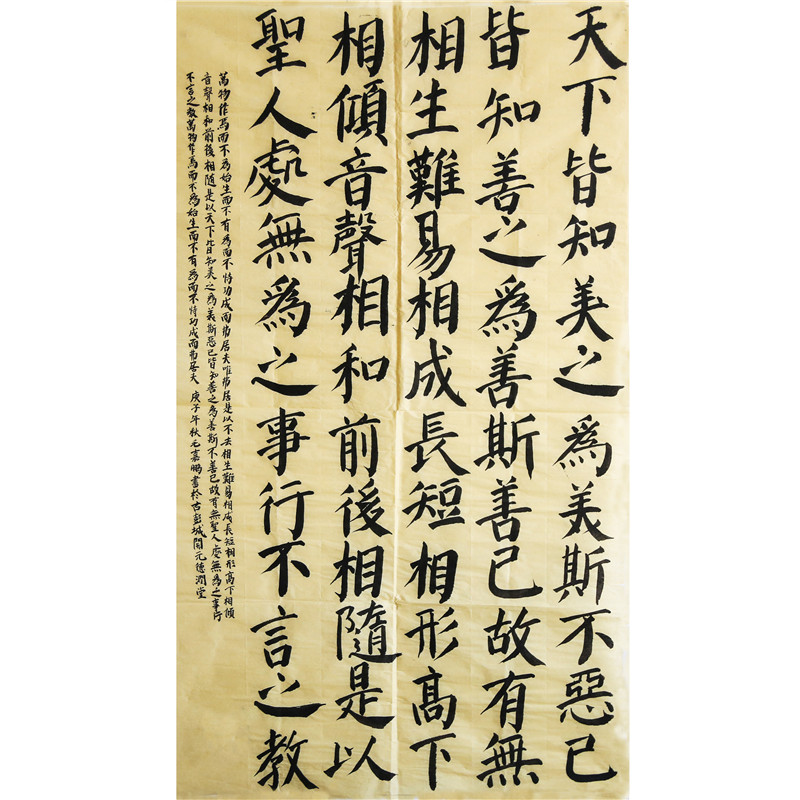 天下皆知美之為美斯不惡已
皆知善之為善斯善已故有無
相生難易相成長短相形高下
相傾音聲相和前後相隨是以
聖人處無為之事行不言之教
萬物作焉而不為始生而不有為而不恃功成而弗居夫唯弗居是以不去相生難易相成長短相形高下相傾
音聲相和前後相隨是以天下皆知美之為美斯惡已皆知善之為善斯不善已故有無聖人處無為之事行
不言之教萬物作焉而不為始生而不有為而不恃功成而弗居夫 庚子年秋元嘉鵬書於古彭城開元德潤堂